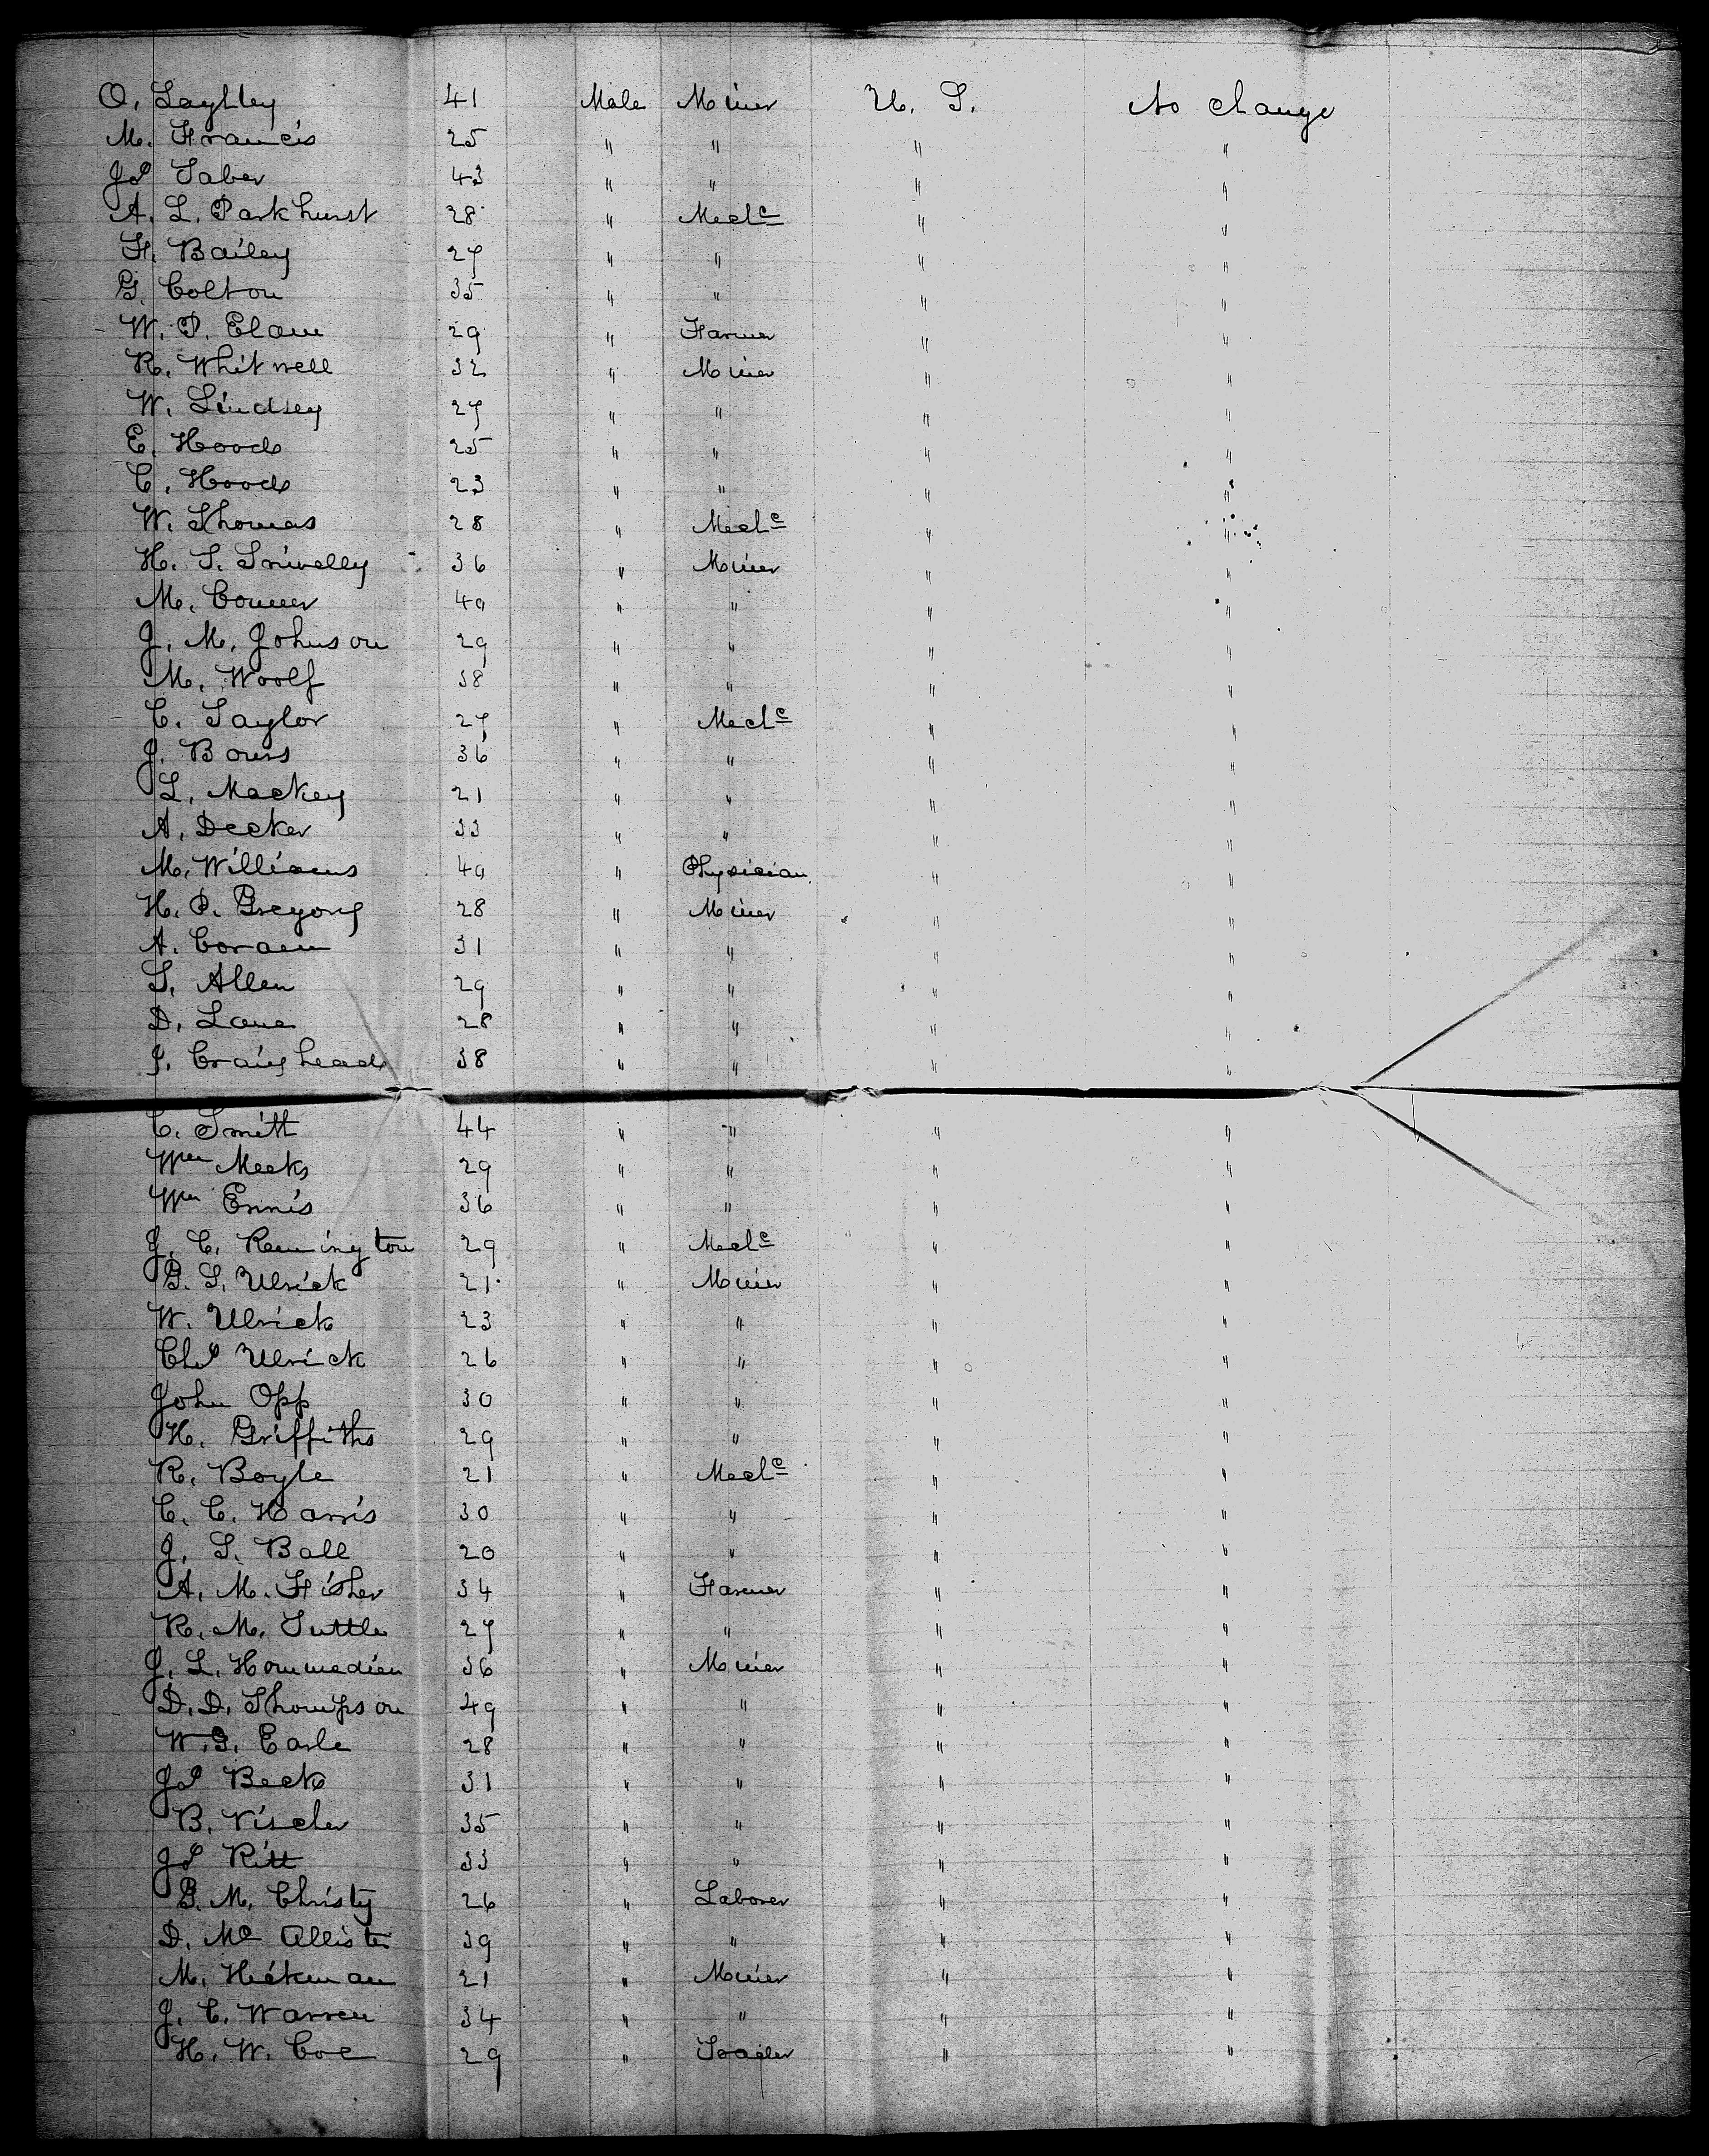 O. Layhley 41 Male Miner U. S. No change
M. Francis 25 " " " "
Jos Taber 43 " " " "
A. L. Parkhurst 28 " Mech<sup>c</sup> " "
F. Bailey 27 " " " "
G. Colton 35 " " " "
W. P. Elam 29 " Farmer " "
R. Whitwell 32 " Miner " "
W. Lindsey 27 " " " "
E. Hoods 25 " " " "
C. Hoods 23 " " " "
W. Thomas 28 " Mech<sup>c</sup> " "
H. S. Snivelly 36 " Miner " "
M. Conner 49 " " " "
J. M. Johnson 29 " " " "
M. Woolf 38 " " " "
C. Taylor 27 " Mech<sup>c</sup> " "
J. Bours 36 " " " "
L. Mackey 21 " " " "
A. Decker 33 " " " "
M. Williams 49 " Physician " "
H. P. Gregory 28 " Miner " "
A. Coram 31 " " " "
S. Allen 29 " " " "
D. Lane 28 " " " "
J. Craighead 38 " " " "
C. Smith 44 " " " "
Wm Meeks 29 " " " "
Wm Ennis 36 " " " "
J. C. Remington 29 " Mech<sup>c</sup> " "
G. S. Ulrick 21 " Miner " "
W. Ulrick 23 " " " "
Chs Ulrick 26 " " " "
John Opp 30 " " " "
H. Griffiths 29 " " " "
R. Boyle 21 " Mech<sup>c</sup> " "
C. C. Harris 30 " " " "
J. S. Ball 20 " " " "
A. M. Fisher 34 " Farmer " "
R. M. Tuttle 27 " " " "
J. L. Hommedieu 36 " Miner " "
D. D. Thompson 49 " " " "
W. G. Earle 28 " " " "
Jos Beck 31 " " " "
B. Vischer 35 " " " "
Jos Ritt 33 " " " "
G. M. Christy 26 " Laborer " "
D. Mc Allister 39 " " " "
M. Hickman 21 " Miner " "
J. C. Warren 34 " " " "
H. W. Coe 29 " " "